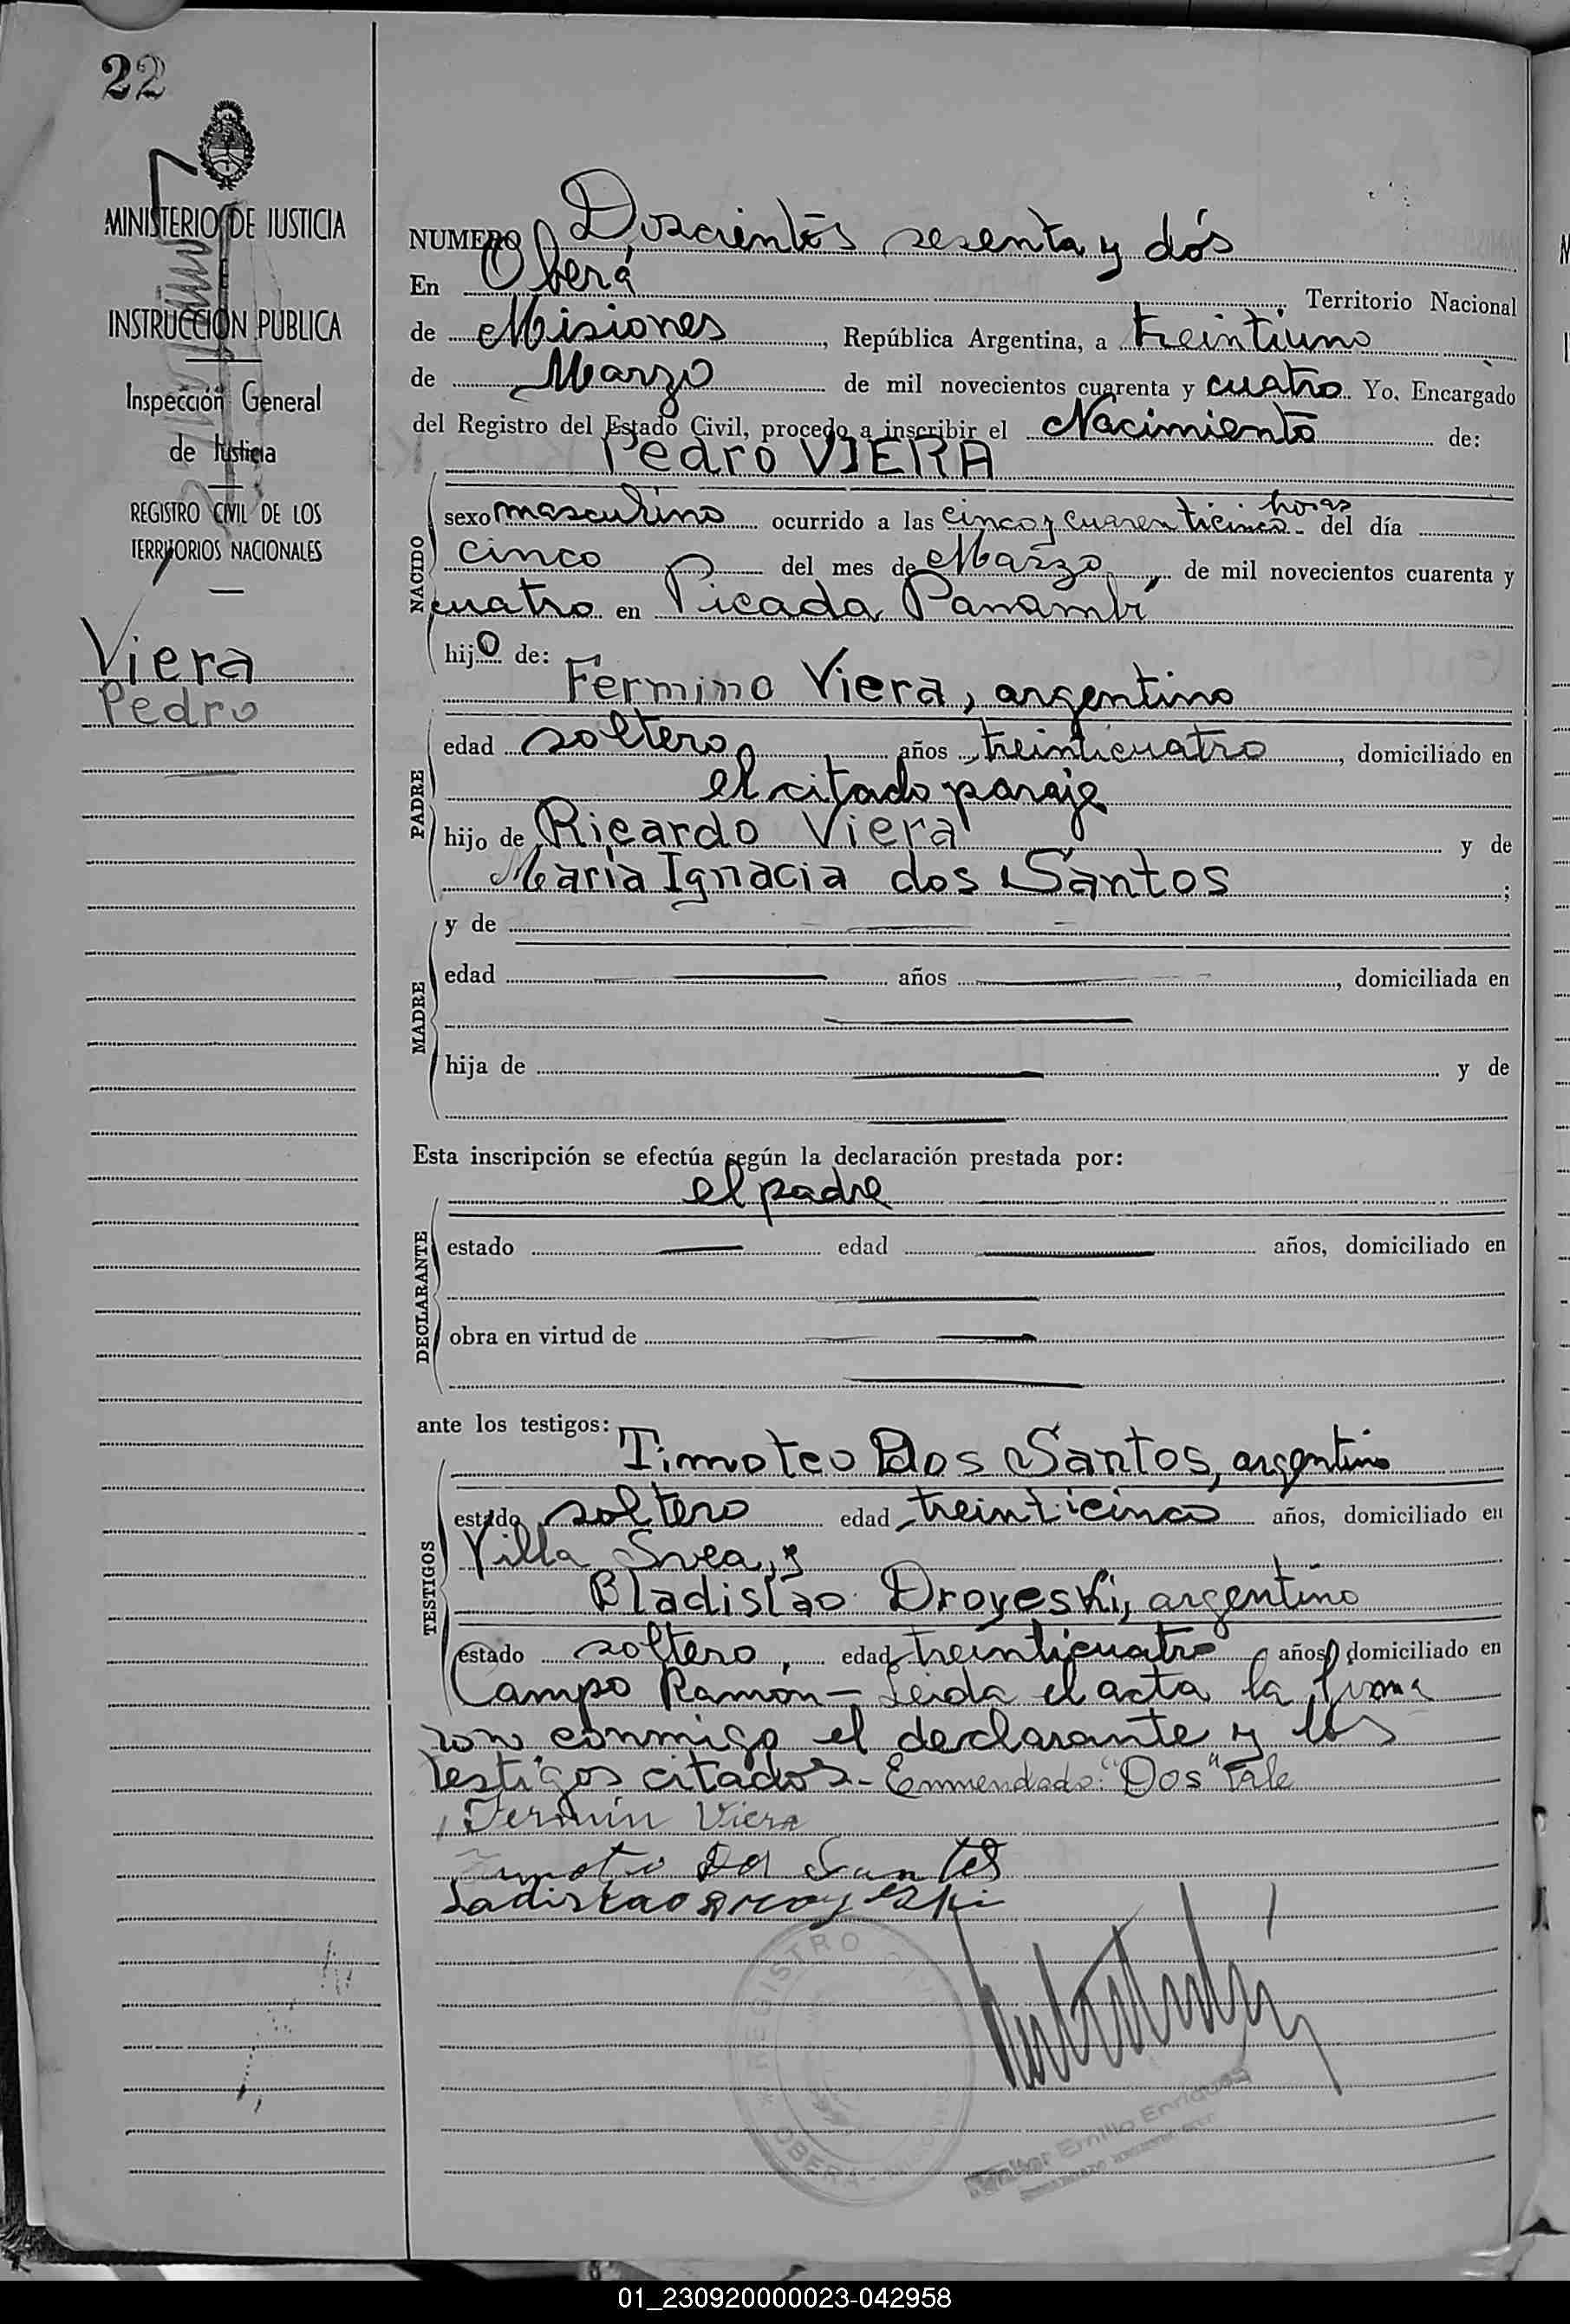 22
MINISTERIO DE JUSTICIA
INSTRUCCIÓN PUBLICA
Inspección General
de Justicia
REGISTRO CIVIL DE LOS
TERRITORIOS NACIONALES
Viera
Pedro
NUMERO Doscientos sesenta y dós
En Oberá, Territorio Nacional
de Misiones, República Argentina, a treintiuno
de Marzo de mil novecientos cuarenta y cuatro Yo, Encargado
del Registro del Estado Civil, procedo a inscribir el Nacimiento de:
Pedro VIERA
NACIDO
horas
sexo masculino ocurrido a las cinco y cuarenticinco- del día
cinco del mes de Marzo, de mil novecientos cuarenta y
cuatro en Picada Panambí
hijo de:
Fermino Viera, argentino
PADRE
edad soltero años treinticuatro, domiciliado en
el citado paraje
hijo de Ricardo Viera y de
María Ignacia dos Santos;
MADRE
y de
edad años, domiciliada en
hija de y de
Esta inscripción se efectúa según la declaración prestada por:
el padre
DECLARANTE
estado edad años, domiciliado en
obra en virtud de
ante los testigos:
Timoteo Dos Santos, argentino
TESTIGOS
estado soltero edad treinticinco años, domiciliado en
Villa Svea, y
Bladislao Droyeski, argentino
estado soltero, edad treinticuatro años, domiciliado en
Campo Ramón- Leida el acta la firma
ron conmigo el declarante y los
testigos citados.- Enmendado: "Dos" Vale
Fermin Viera
Timoteo Dos Santos
Ladislao Droyeski
REGISTRO CIVIL
OBERA - MISIONES
Emilio Enriquez
01_230920000023-042958